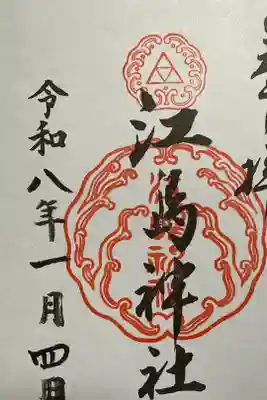 江島神社
令和八年一月四日